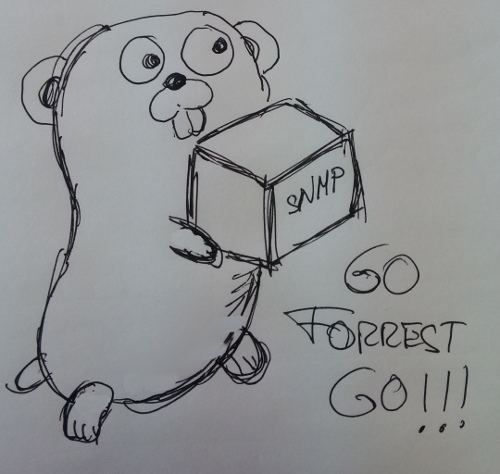 SNMP
GO
FORREST
GO!!!